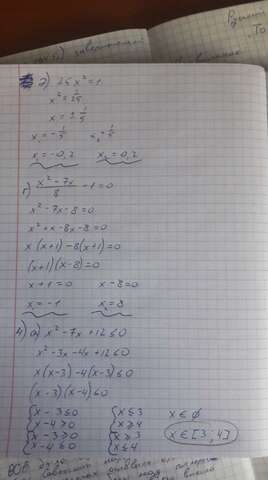 в) 25x² = 1
x² = 1/25
x = ± 1/5
x₁ = -1/5 x₂ = 1/5
x₁ = -0,2 x₂ = 0,2
г) (x² - 7x)/8 - 1 = 0
x² - 7x - 8 = 0
x² + x - 8x - 8 = 0
x(x+1) - 8(x+1) = 0
(x+1)(x-8) = 0
x + 1 = 0 x - 8 = 0
x₁ = -1 x₂ = 8
4) а) x² - 7x + 12 ≤ 0
x² - 3x - 4x + 12 ≤ 0
x(x-3) - 4(x-3) ≤ 0
(x-3)(x-4) ≤ 0
{x - 3 ≤ 0 {x ≤ 3 x ∈ ∅
{x - 4 ≥ 0 {x ≥ 4
{x - 3 ≥ 0 {x ≥ 3 x ∈ [3; 4]
{x - 4 ≤ 0 {x ≤ 4